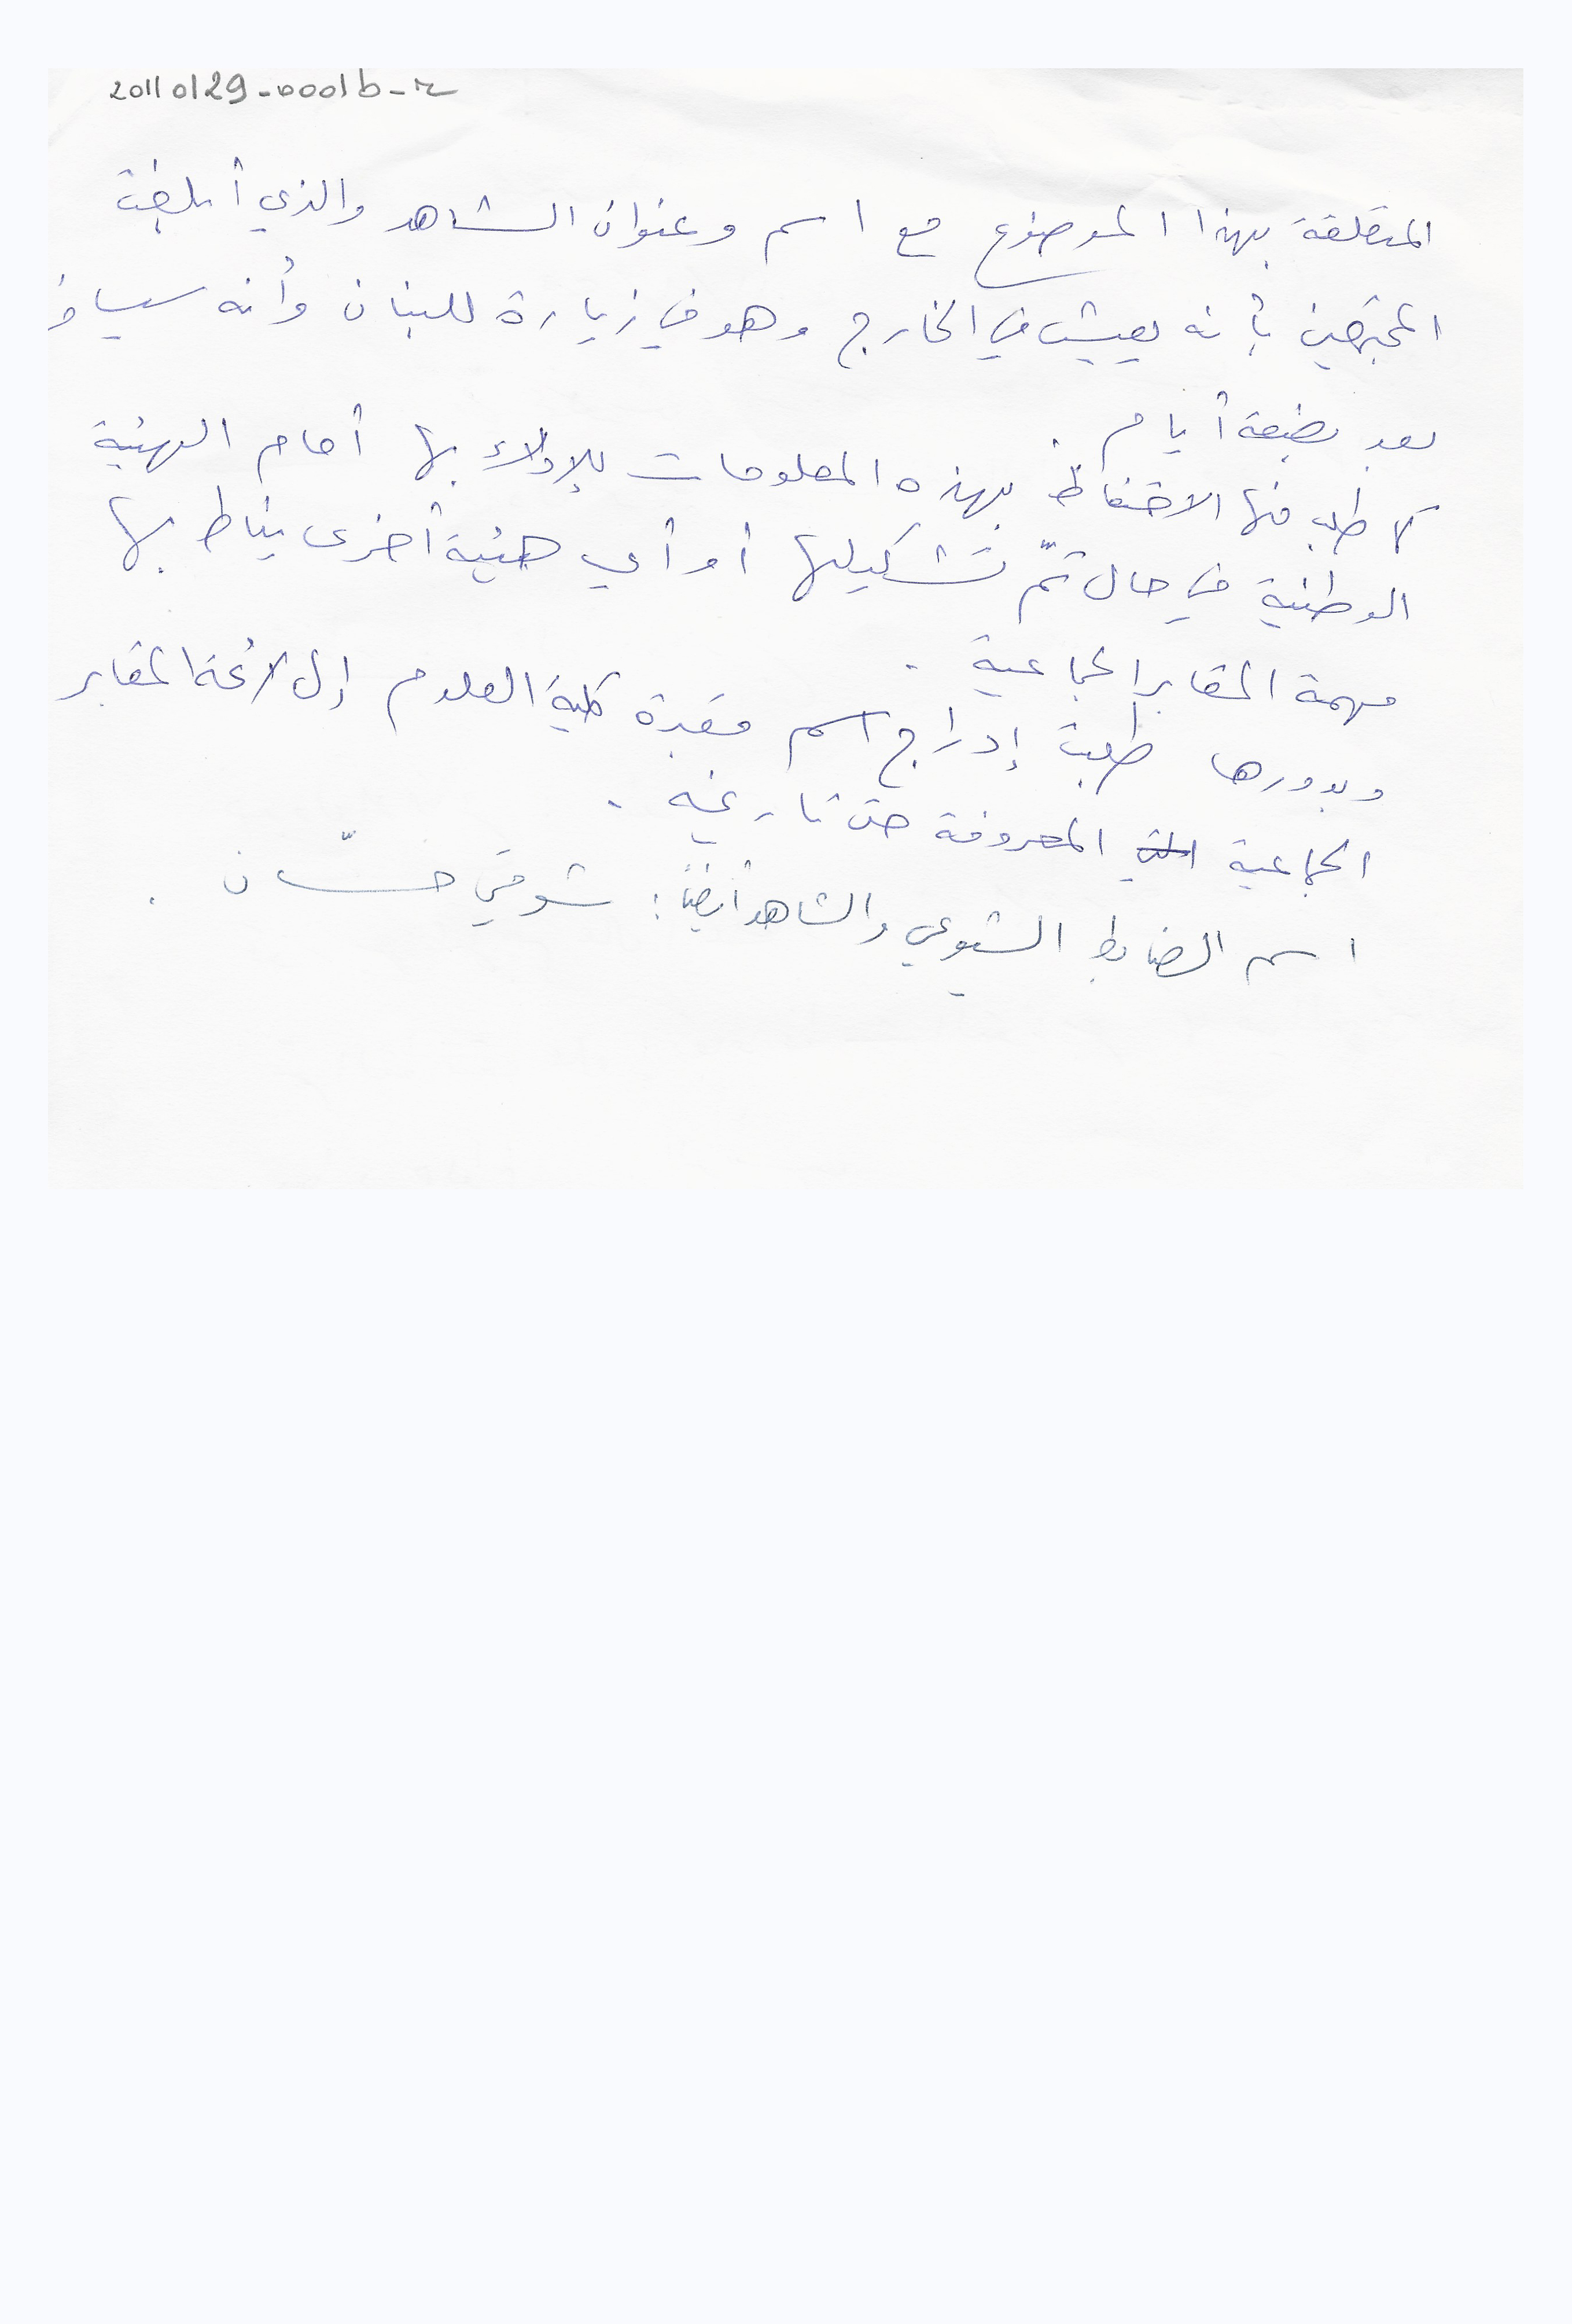 20110129-0001b-r
المتعلقة بهذا الموضوع مع اسم وعنوان الشاهد والذي أبلغت
المجتمعين بأنه يعيش في الخارج وهو في زيارة للبنان وأنه سيسافر
بعد بضعة أيام .
كما طلب منها الاحتفاظ بهذه المعلومات للإدلاء بها أمام الهيئة
الوطنية في حال تمّ تشكيلها أو أي هيئة أخرى يناط بها
مهمة المقابر الجماعية .
وبدورها طلبت إدراج اسم مقبرة كلية العلوم إلى لائحة المقابر
الجماعية المعروفة حتى تاريخه .
اسم الضابط الشيوعي والشاهد أيضاً : شوقي حسّان .